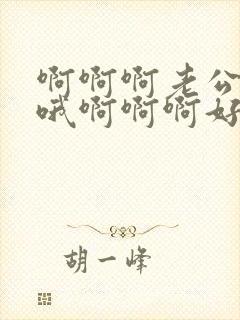 啊啊啊老公
哦啊啊啊好
胡一峰